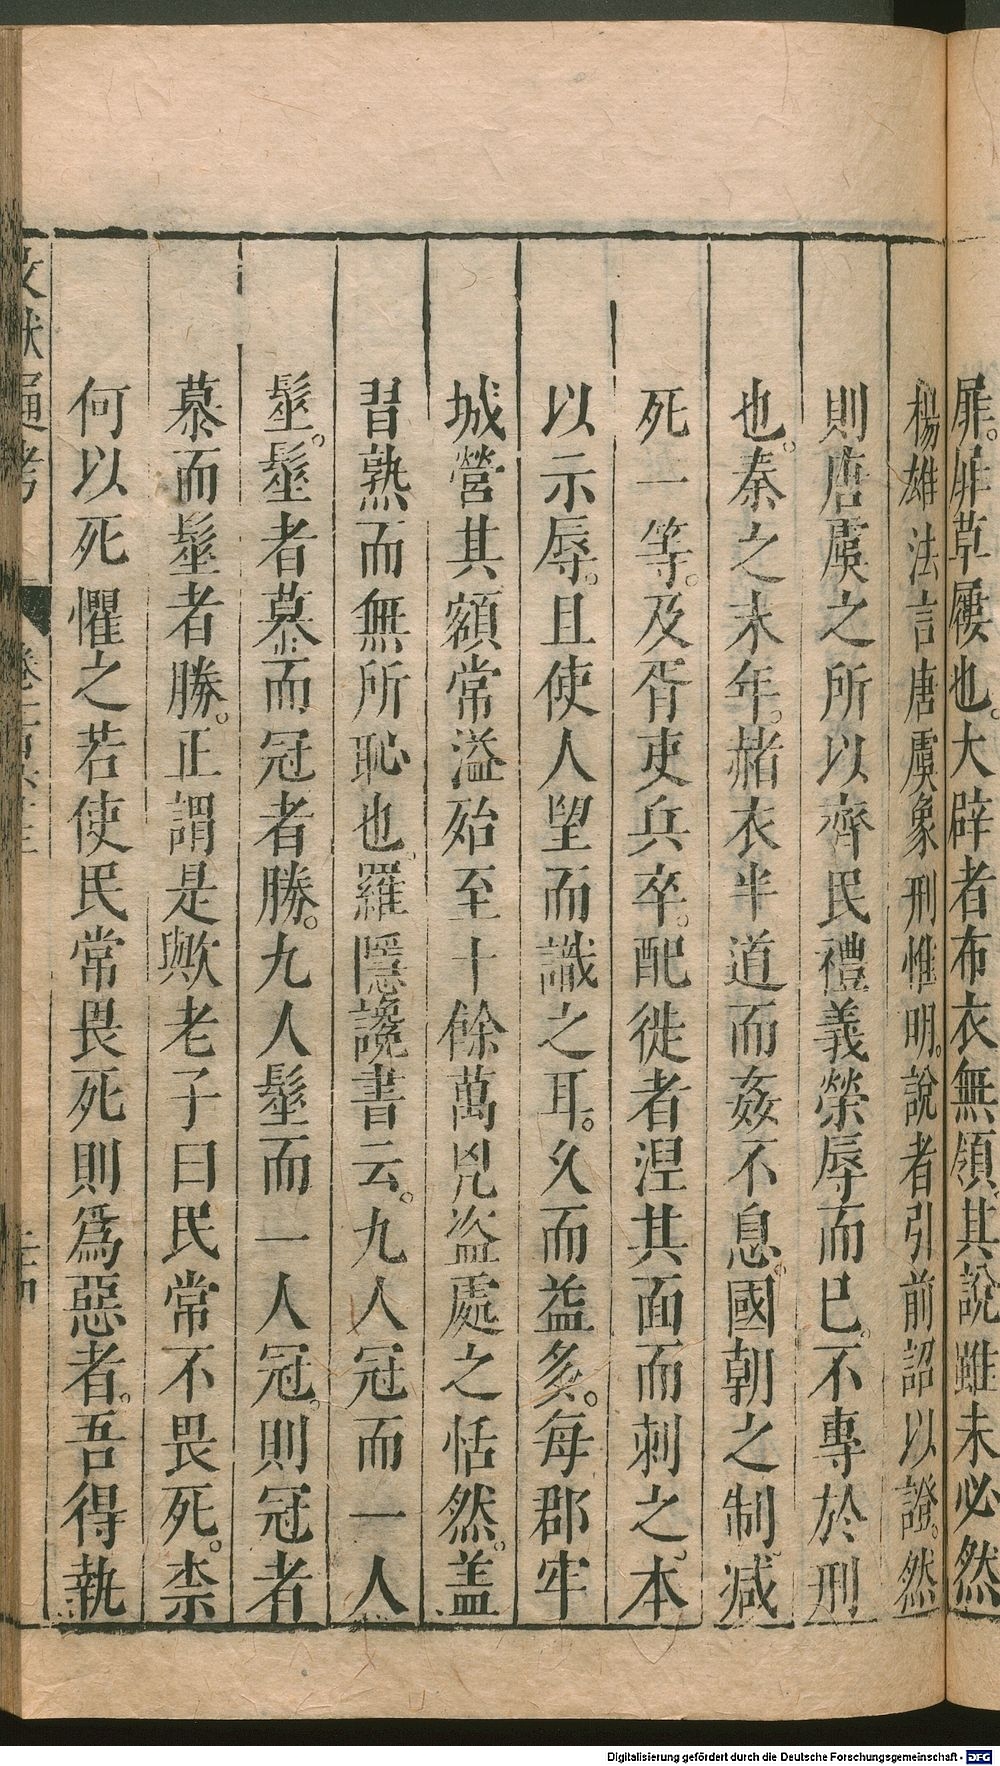 屝。屝草屨也。大辟者布衣無領。其說雖未必然
楊雄法言唐虞象刑惟明。說者引前詔以證。然
則唐虞之所以齊民禮義榮辱而已。不專於刑
也。秦之末年。赭衣半道而姦不息。國朝之制。減
死一等。及胥吏兵卒。配徙者涅其面而刺之。本
以示辱。且使人望而識之耳。久而益多。每郡牢
城營其額常溢殆至十餘萬兇盗處之恬然。盖
習熟而無所恥也。羅隱讒書云。九人冠而一人
髽。髽者慕而冠者勝。九人髽而一人冠。則冠者
慕而髽者勝。正謂是歟老子曰民常不畏死。柰
何以死懼之若使民常畏死則爲惡者。吾得執
文獻通考
Digitalisierung gefördert durch die Deutsche Forschungsgemeinschaft - DFG